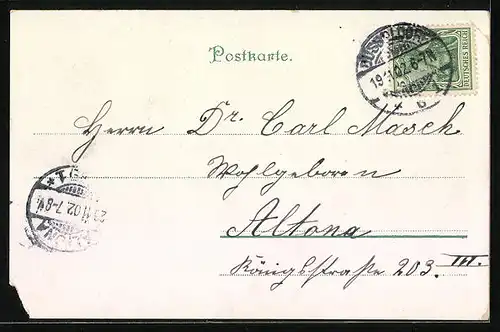 Postkarte.
DÜSSELDORF
19.11.02.6-7N.
DEUTSCHES REICH
Herrn Dr. Carl Masch
Wohlgeboren
Altona
Königsstraße 203. III.
ALTONA
20.11.02.7-8V.